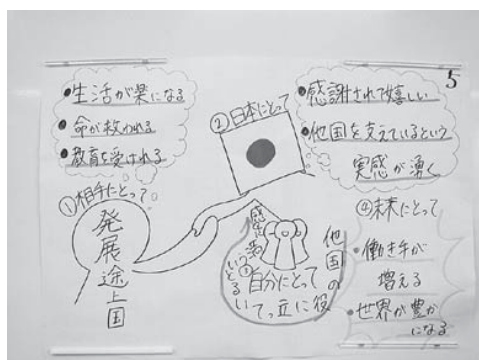 5
●生活が楽になる
●命が救われる
●教育を受けれる
①相手にとって
発展途上国
②日本にとって
●感謝されて嬉しい
●他国を支えているという
実感が湧く
③自分にとって
他国の
役に立って
いるという
④未来にとって
●働き手が
増える
●世界が豊か
になる